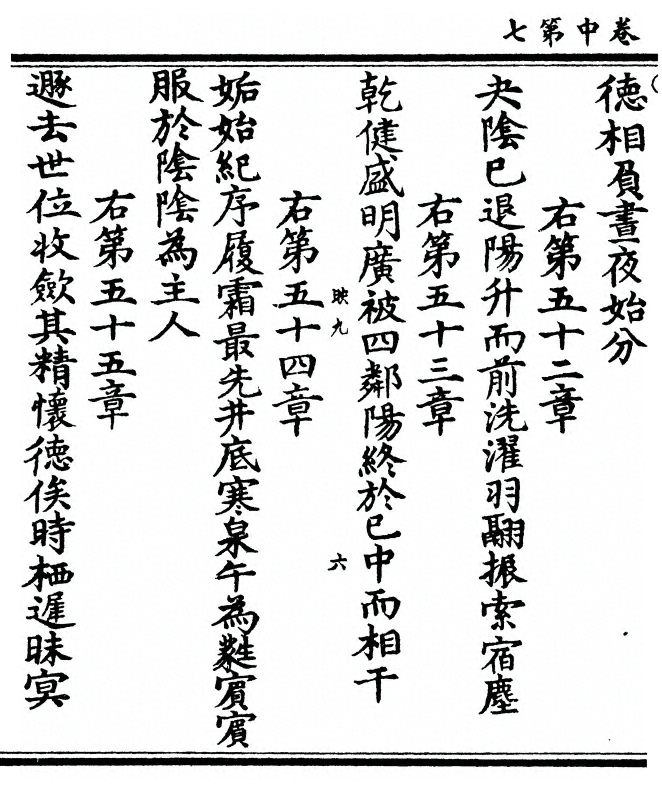 卷中第七
徳相負晝夜始分
右第五十二章
夬陰巳退陽升而前洗濯羽翮振索宿塵
右第五十三章
乾健盛明廣被四鄰陽終於巳中而相干
映九 六
右第五十四章
姤始紀序履霜最先井底寒泉午為蕤賔賔
服於陰陰為主人
右第五十五章
遯去世位收歛其精懷徳俟時栖遲昧冥